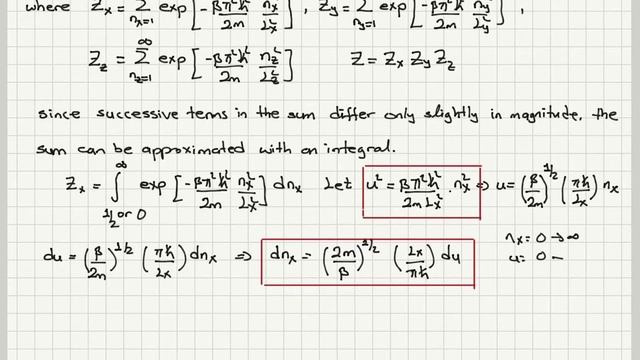 where Z_x = Σ_{n_x=1}^{∞} exp[-βπ²ħ²/2m n_x²/L_x²], Z_y = Σ_{n_y=1} exp[-βπ²ħ²/2m n_y²/L_y²],
Z_z = Σ_{n_z=1}^{∞} exp[-βπ²ħ²/2m n_z²/L_z²] Z = Z_x Z_y Z_z
since successive terms in the sum differ only slightly in magnitude, the
sum can be approximated with an integral.
Z_x = ∫_{1/2 or 0}^{∞} exp[-βπ²ħ²/2m n_x²/L_x²] dn_x Let u² = βπ²ħ²/2mL_x² . n_x² => u = (β/2m)^{1/2} (πħ/L_x) n_x
du = (β/2m)^{1/2} (πħ/L_x) dn_x => dn_x = (2m/β)^{1/2} (L_x/πħ) du
n_x = 0 → ∞
u = 0 –